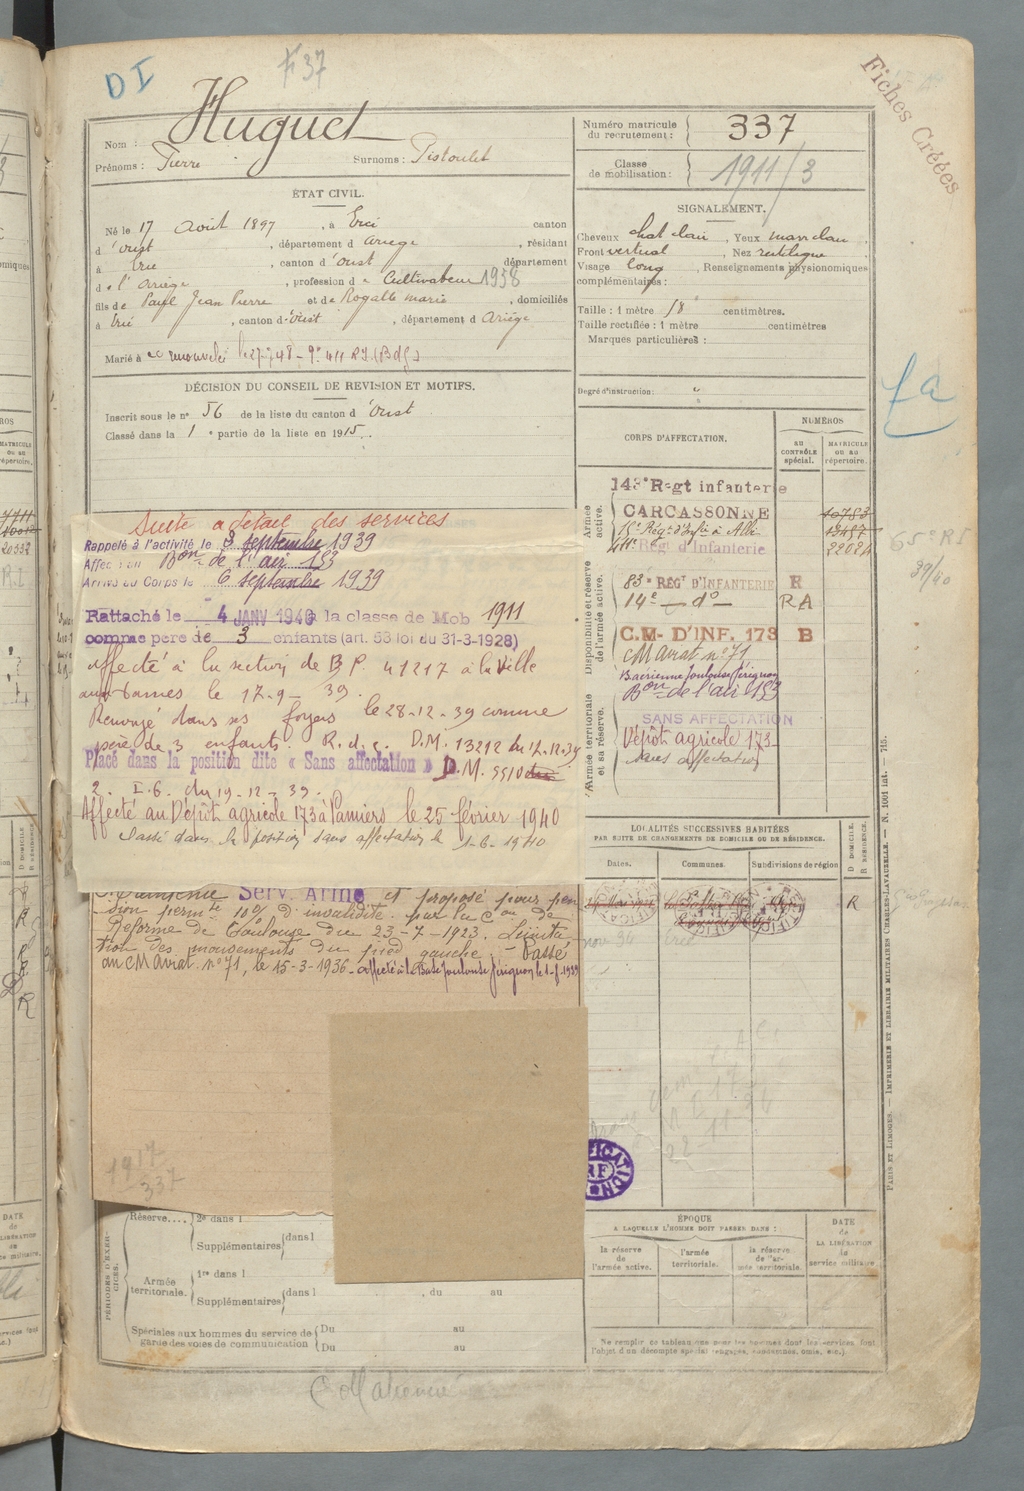 DI
F 37
Fiches Créées
Nom : Huguet
Prénoms : Pierre Surnoms : Pistoulet
Numéro matricule du recrutement : 337
Classe de mobilisation : 1911/3
ÉTAT CIVIL.
Né le 17 Août 1897, à Ercé canton
d'Oust, département d Ariège, résidant
à Ercé, canton d'Oust département
d e l'Ariège, profession d e Cultivateur 1938
fils de Jean Pierre et de Rogalle marie, domiciliés
à Ercé, canton d'Oust, département d Ariège
Marié à
DÉCISION DU CONSEIL DE REVISION ET MOTIFS.
Inscrit sous le n° 56 de la liste du canton d'Oust
Classé dans la 1e partie de la liste en 1915.
SIGNALEMENT.
Cheveux chat clair, Yeux marr clair
Front vertical, Nez rectiligne
Visage long, Renseignements physionomiques
complémentaires :
Taille : 1 mètre centimètres.
Taille rectifiée : 1 mètre centimètres
Marques particulières :
Degré d'instruction : "
CORPS D'AFFECTATION.
NUMÉROS
AU CONTRÔLE spécial.
MATRICULE OU AU répertoire.
Armée active.
143e Régt infanterie
CARCASSONNE 10783
15e Régt d'Infie à Albi 13457
411e Régt d'Infanterie 22084
Disponibilité et réserve de l'armée active.
83e RÉGT D'INFANTERIE R
14e — do — RA
C.M- D'INF. 173 B
CM Aviat n° 71
Base aérienne Toulouse Francazal
Bon de l'air 153
Armée territoriale et sa réserve.
SANS AFFECTATION
Dépôt agricole 173
sans affectation
fa
65e RI
39/40
Suite a détail des services
Rappelé à l'activité le 3 septembre 1939
Affecté au Bon de l'air 153
Arrivé au Corps le 6 septembre 1939
Rattaché le 4 JANV 1940 à la classe de Mob 1911
comme père de 3 enfants (art. 58 loi du 31-3-1928)
affecté à la section de B.P. 41217 à la Ville
aux-Dames le 17-9-39.
Renvoyé dans ses foyers le 28-12-39 comme
père de 3 enfants. R.d.c. D.M. 13212 du 12.12.39
Placé dans la position dite « Sans affectation » D.M. 5510
2. I.6. du 19-12-39.
Affecté au Dépôt agricole 173 à Pamiers le 25 février 1940
Classé dans la position sans affectation le 1-6-1940
Serv. Armé et proposé pour pen
sion permte 10% d'invalidité par la Con de
Réforme de Toulouse du 23-7-1923. Limita
tion des mouvements du pied gauche - Passé
au CM Aviat. n° 71, le 15-3-1936
LOCALITÉS SUCCESSIVES HABITÉES
PAR SUITE DE CHANGEMENTS DE DOMICILE OU DE RÉSIDENCE.
Dates. Communes. Subdivisions de région
D DOMICILE. R RÉSIDENCE.
R
1917
337
PÉRIODES D'EXERCICES.
Réserve.... 2e dans l
Supplémentaires dans l
Armée territoriale. 1re dans l
Supplémentaires dans l, du au
Spéciales aux hommes du service de garde des voies de communication Du au
Du au
ÉPOQUE
A LAQUELLE L'HOMME DOIT PASSER DANS :
la réserve de l'armée active.
l'armée territoriale.
la réserve de l'armée territoriale.
DATE de LA LIBÉRATION du service militaire.
Ne remplir ce tableau que pour les hommes dont les services font l'objet d'un décompte spécial (engagés, condamnés, omis, etc.).
PARIS ET LIMOGES. — IMPRIMERIE ET LIBRAIRIE MILITAIRES CHARLES-LAVAUZELLE. — N. 1001 lat. — 715.
Collationné